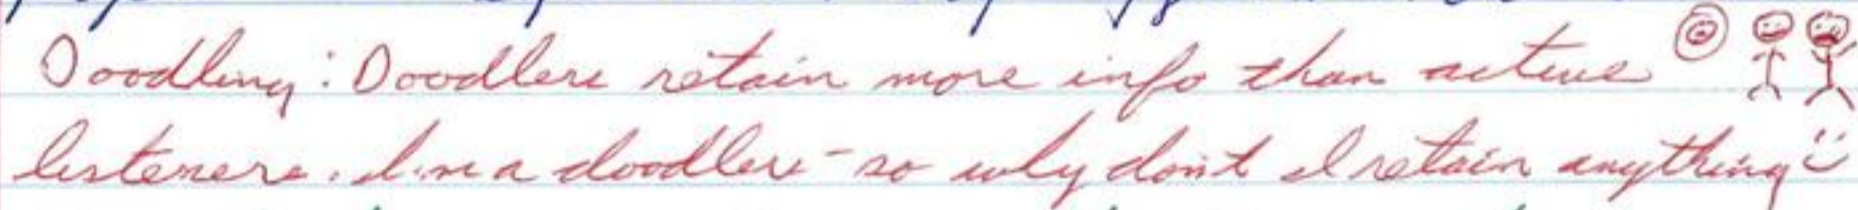 Doodling: Doodlers retain more info than active
listeners. I'm a doodler - so why don't I retain anything